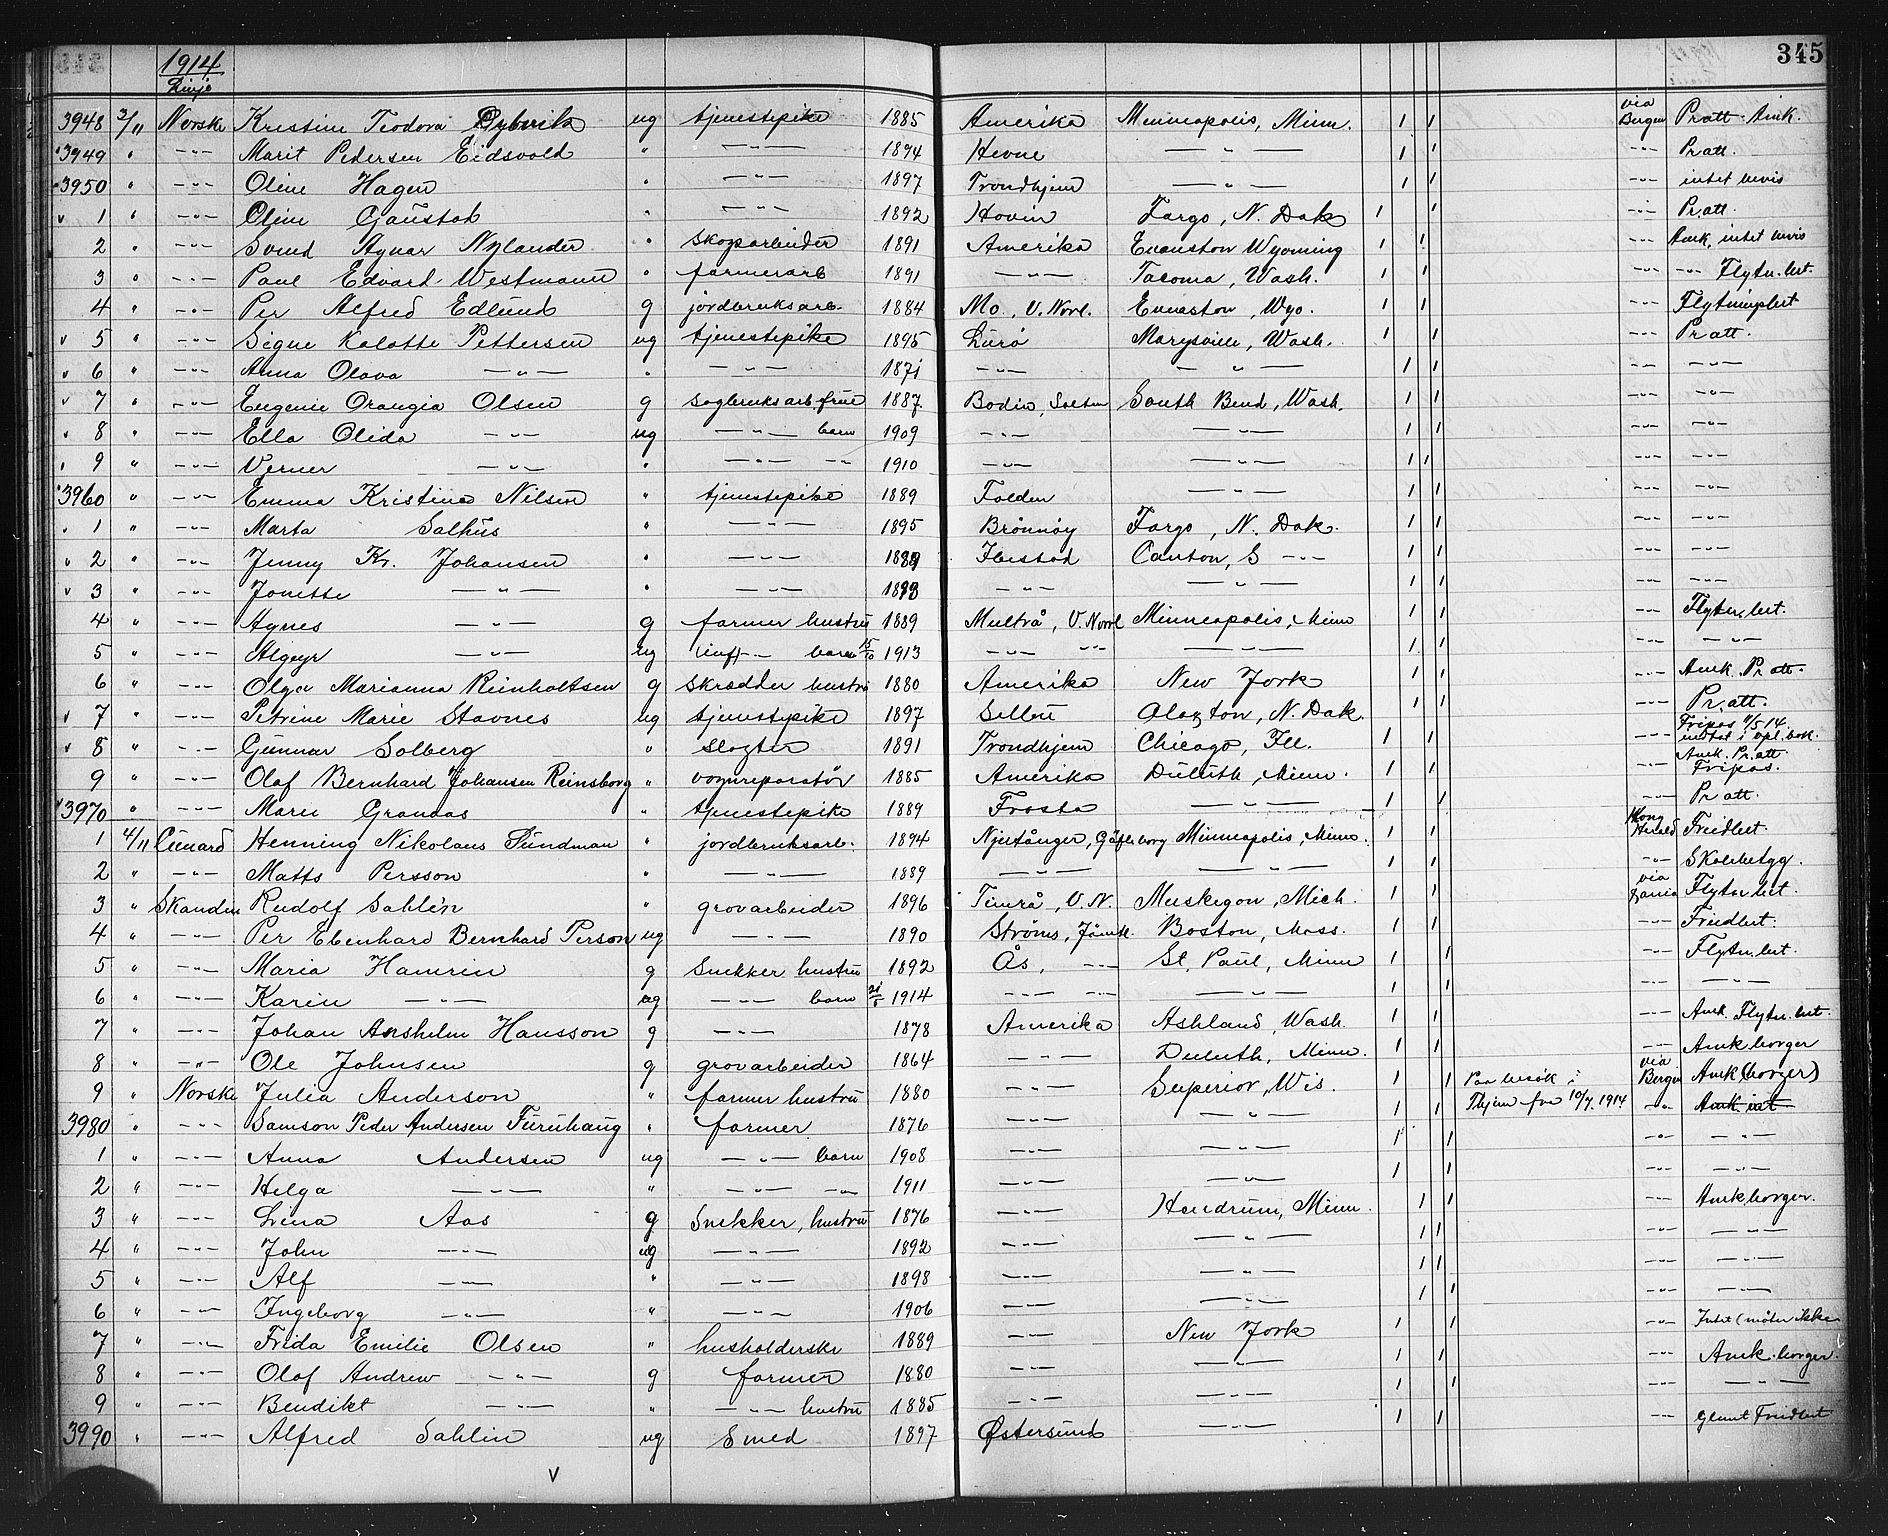 1914
Linje
345
3948 2/11 Norske Kristine Teodora Dybvik ug tjenestepike 1885 Amerika Minneapolis, Minn. 1 1 via Bergen Pr att. Amk.
3949 " -"- Marit Pedersen Eidsvold " -"- 1894 Hevne -"- 1 1 -"- Pr att.
3950 " -"- Oline Hagen " -"- 1897 Trondhjem -"- 1 1 -"- intet bevis
1 " -"- Oline Gaustak " -"- 1892 Hovin Fargo, N. Dak 1 1 -"- Pr. att.
2 " -"- Svend Agnar Nylander " skogsarbeider 1891 Amerika Evanston Wyoming 1 1 -"- Amk, intet bevis
3 " -"- Paul Edvard Westmann " farmerarb 1891 -"- Tacoma, Wash. 1 1 -"- -"- Flytn. bet.
4 " -"- Per Alfred Edlund g jordbruksarb. 1884 Mo, V. Norrl. Evanston, Wyo. 1 1 -"- Flytningsbet
5 " -"- Signe Kalotte Pettersen ug tjenestepike 1895 Lurö Marysville, Wash. 1 1 -"- Pr att.
6 " -"- Anna Olava -"- " -"- 1871 -"- -"- 1 1 -"- -"-
7 " -"- Eugenie Orangia Olsen g sagbruksarb. frue 1887 Bodin, Salten South Bend, Wash. 1 1 -"- -"-
8 " -"- Ella Olida -"- ug -"- barn 1909 -"- -"- 1 1 -"- -"-
9 " -"- Verner -"- " -"- -"- 1910 -"- -"- 1 1 -"- -"-
3960 " -"- Emma Kristina Nilsen " tjenestepike 1889 Folden -"- 1 1 -"- -"-
1 " -"- Marta Salhus " -"- 1895 Brönnöy Fargo, N. Dak. 1 1 -"- -"-
2 " -"- Jenny Kr. Johansen " -"- 1889 Flustad Canton, S -"- 1 1 -"- -"-
3 " -"- Jonette -"- " -"- 1893 -"- -"- 1 1 -"- -"-
4 " -"- Agnes -"- g farmer hustru 1889 Multrå, V. Norrl Minneapolis, Minn 1 1 -"- Flytn. bet.
5 " -"- Algeyr -"- ug -"- barn 15/10 1913 -"- -"- -"- 1 1 -"- -"-
6 " -"- Olga Marianna Reinholtsen g Skrædder hustru 1880 Amerika New York 1 1 -"- Amk. Pr att.
7 " -"- Petrine Marie Stavnes ug tjenestepike 1897 Selbu Clayton, N. Dak. 1 1 Pr. att.
8 " -"- Gunnar Solberg " slagter 1891 Trondhjem Chicago, Ill. 1 1 -"- Fripas 4/5 14. indtat i opl. bok.
9 " -"- Olaf Bernhard Johansen Reinsborg " vognreparatör 1885 Amerika Duluth, Minn. 1 1 -"- Amk. Pr. att Fripas.
3970 " -"- Maren Granaas " tjenestepike 1889 Frosta -"- 1 1 -"- Pr att.
1 4/11 Cunard Henning Nikolaus Sundman " jordbruksarb. 1894 Njutånger, Gäfleborg Minneapolis, Minn. 1 1 Kong Harald Friedbet.
2 " -"- Matts Persson " -"- 1889 -"- 1 1 -"- Skolebetyg.
3 " Skandin Rudolf Sahlén " grovarbeider 1896 Timrå, V. N. Muskegon, Mich. 1 1 via Zania Flytn. bet.
4 " -"- Per Ebenhard Bernhard Person ug -"- 1890 Ströms, Jämtl. Boston, Mass. 1 1 -"- Friedbet.
5 " -"- Maria Hamrin g Snekker hustru 1892 Ås, -"- St. Paul, Minn 1 1 -"- Flytn. bet.
6 " -"- Karin -"- ug -"- barn 21/5 1914 -"- -"- -"- 1 1 -"- -"-
7 " -"- Johan Anshelm Hansson g -"- 1878 Amerika Ashland, Wash. 1 1 -"- Amk. Flytn. bet.
8 " -"- Ole Johnsen g grovarbeider 1864 -"- Duluth, Minn. 1 1 -"- Amk borger
9 " Norske Julia Anderson " farmer hustru 1880 -"- Superior, Wis. 1 1 Paa besök i via Bergen Amk. (borger)
3980 " -"- Samson Peder Andersen Furuhaug " farmer 1876 -"- -"- 1 1 Thjem fra 10/7. 1914 -"- Amk. int
1 " -"- Anna Andersen ug -"- barn 1908 -"- -"- 1 1 -"- -"-
2 " -"- Helga -"- " -"- -"- 1911 -"- -"- 1 1 -"- -"-
3 " -"- Lena Aas g Snekker, hustru 1876 -"- Hendrum, Minn. 1 1 -"- Amk borger.
4 " -"- John -"- ug -"- 1892 -"- -"- 1 1 -"- -"-
5 " -"- Alf -"- " -"- 1898 -"- -"- 1 1 -"- -"-
6 " -"- Ingeborg -"- " -"- 1906 -"- -"- 1 1 -"- -"-
7 " -"- Frida Emilie Olsen " husholderske 1889 -"- New York 1 1 -"- Intet (möter ikke
8 " -"- Olaf Andrew -"- g farmer 1880 -"- -"- 1 1 -"- Amk. borger.
9 " -"- Bendikt -"- " -"- hustru 1885 -"- -"- 1 1 -"- -"-
3990 " -"- Alfred Sahlin ug Smed 1897 Östersund -"- 1 1 -"- glemt Friedbet
v